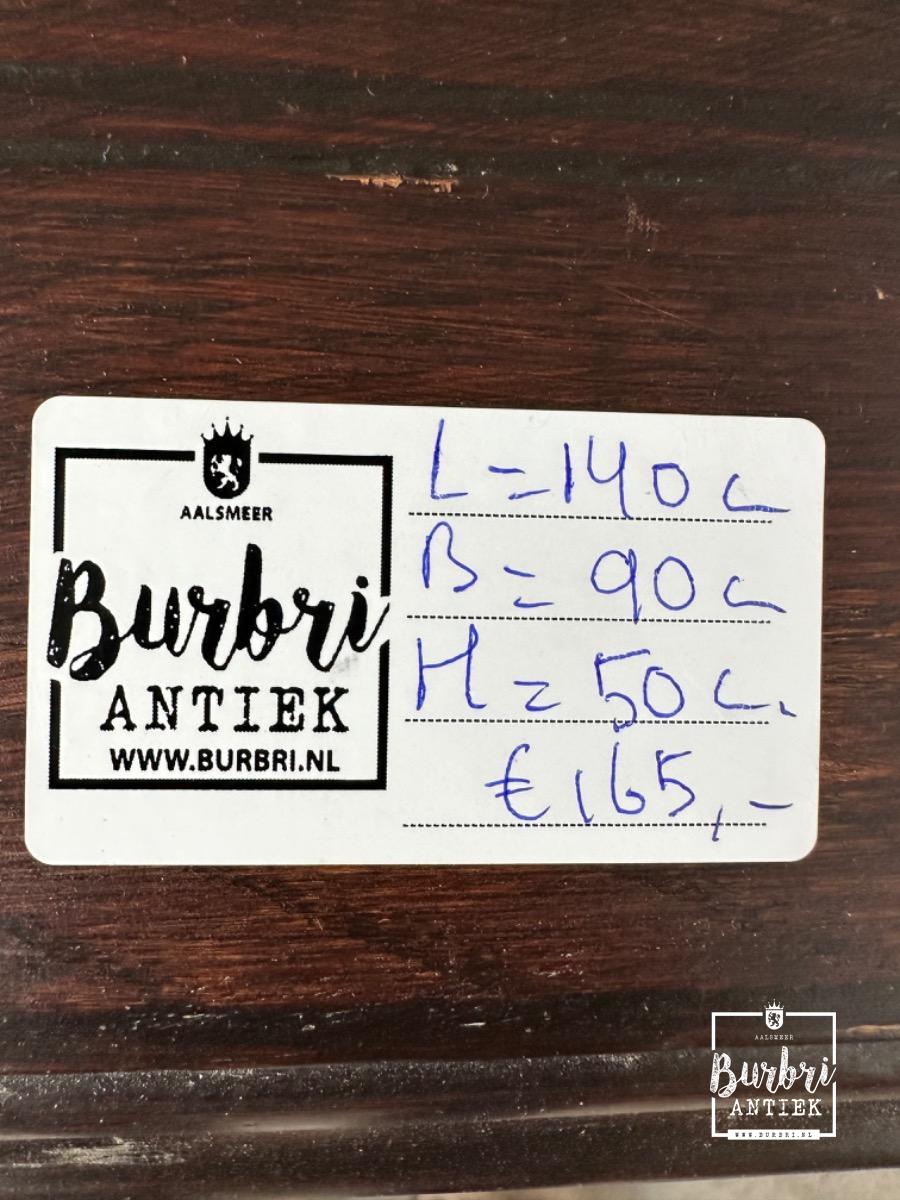 AALSMEER
Burbri
ANTIEK
WWW.BURBRI.NL
L = 140 c
B = 90 c
H = 50 c.
€ 165,-
AALSMEER
Burbri
ANTIEK
WWW.BURBRI.NL